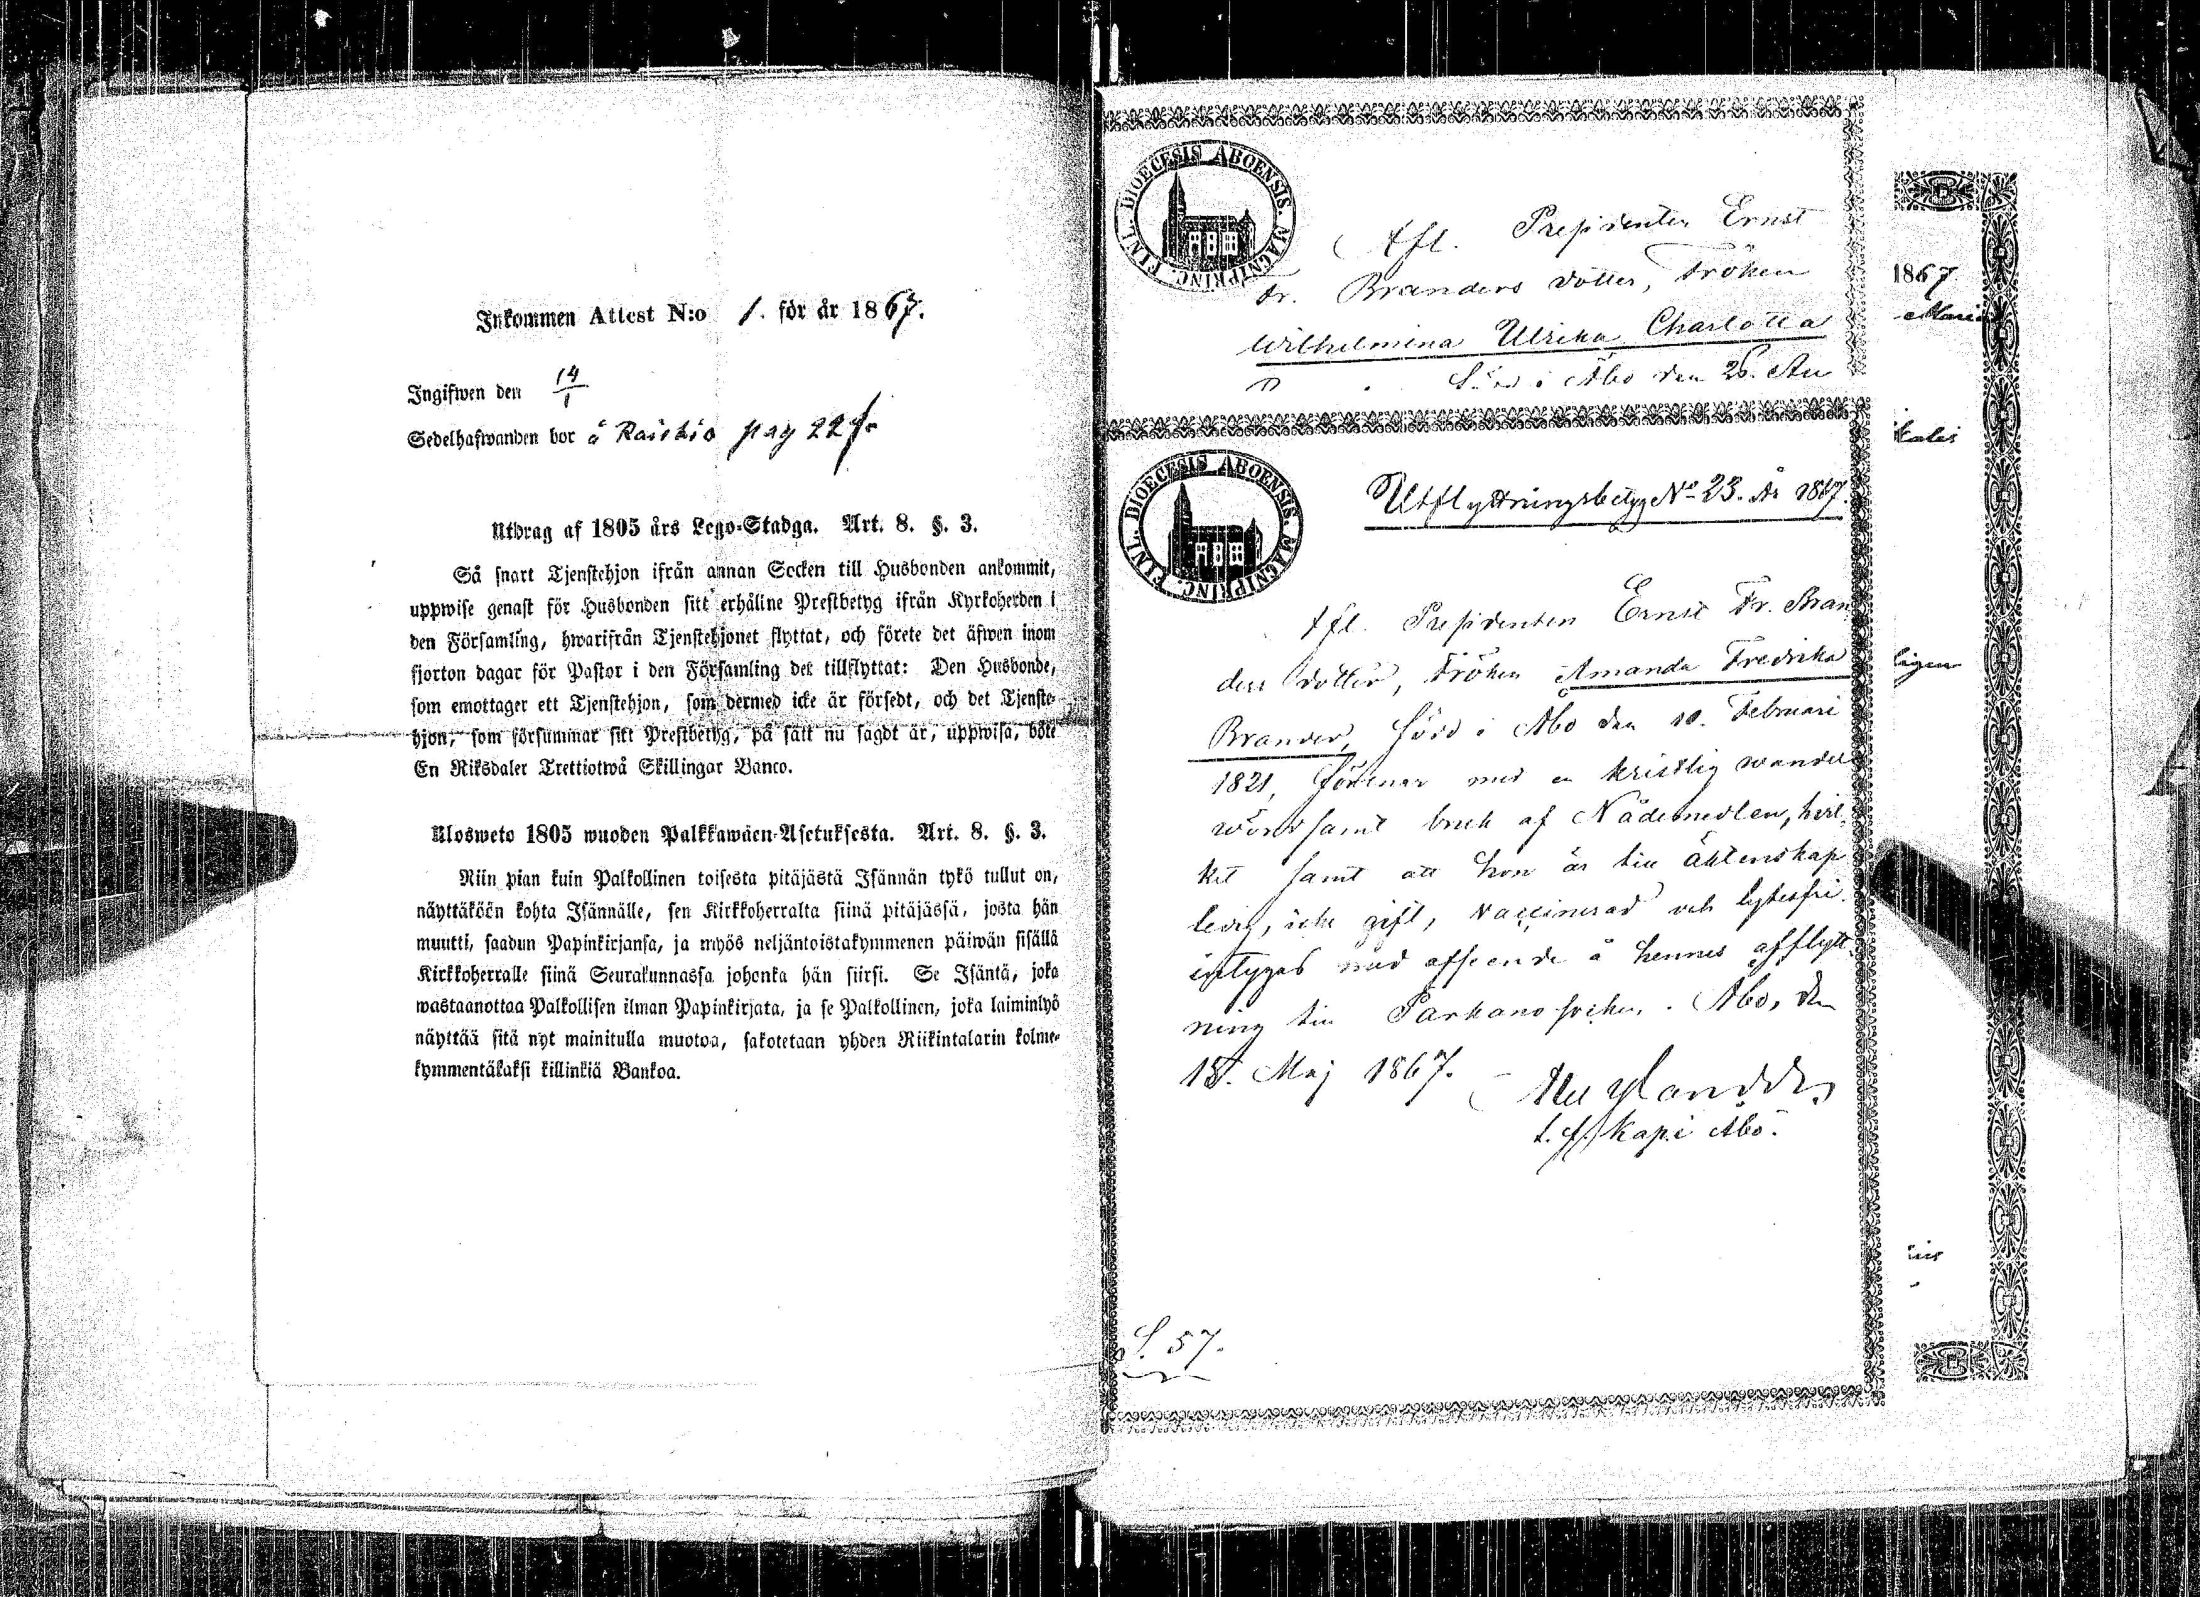 Inkommen Attest N:o 1. för år 1867.
Ingifwen den 14/1
Sedelhafwanden bor å Raishio pag 227.
Utdrag af 1805 års Lego-Stadga. Art. 8. §. 3.
Så snart Tjenstehjon ifrån annan Socken till Husbonden ankommit,
uppwise genast för Husbonden sitt erhållne Prestbetyg ifrån Kyrkoherden i
den Församling, hwarifrån Tjenstehjonet flyttat, och förete det äfwen inom
fjorton dagar för Pastor i den Församling det tillflyttat: Den Husbonde,
som emottager ett Tjenstehjon, som dermed icke är försedt, och det Tjenste-
hjon, som försummar sitt Prestbetyg, på sätt nu sagdt är, uppwisa, böte
En Riksdaler Trettiotwå Skillingar Banco.
Ulosweto 1805 wuoden Palkkawäen-Asetuksesta. Art. 8. §. 3.
Niin pian kuin Palkollinen toisesta pitäjästä Isännän tykö tullut on,
näyttäköön kohta Isännälle, sen Kirkkoherralta siinä pitäjässä, josta hän
muutti, saadun Papinkirjansa, ja myös neljäntoistakymmenen päiwän sisällä
Kirkkoherralle siinä Seurakunnassa johonka hän siirsi. Se Isäntä, joka
wastaanottaa Palkollisen ilman Papinkirjata, ja se Palkollinen, joka laiminlyö
näyttää sitä nyt mainitulla muotoa, sakotetaan yhden Riikintalarin kolme-
kymmentäkaksi killinkiä Bankoa.
FINL. DIOECESIS ABOENSIS. MAGNIPRINC.
Afl. Presidenten Ernst
Fr. Branders dotter, Fröken
Wilhelmina Ulrika Charlotta
född i Åbo den 26. Au
FINL. DIOECESIS ABOENSIS. MAGNIPRINC.
Utflyttningsbetyg No 23. År 1867.
Afl. Presidenten Ernst Fr. Bran
ders dotter, Fröken Amanda Fredrika
Brander, född i Åbo den 10. Februari
1821, förenar med en kristlig wandel
wördsamt bruk af Nådemedlen, hvil-
ket samt att hon är till äktenskap
ledig, icke gift, vaccinerad och lytesfri
intygas med afseende å hennes afflytt-
ning till Parkano socken. Åbo, den
18. Maj 1867.
t. f. Kap. i Åbo.
S. 57.
1867
Maria
ligen